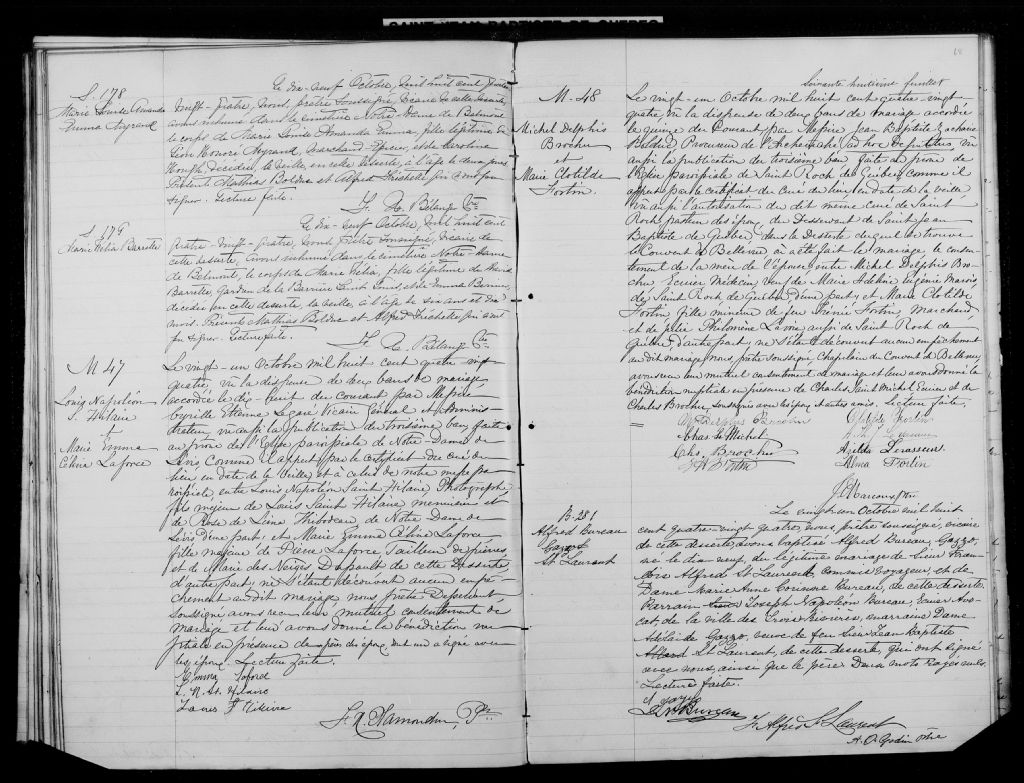 SAINT JEAN BAPTISTE DE QUEBEC
S. 178
Marie Louise Amanda
Emma
Le dix-neuf Octobre, mil huit cent quatre
vingt-quatre, nous, prêtre soussigné, vicaire de cette desserte
avons inhumé dans le cimetière Notre-Dame de Belmont
le corps de Marie Louise Amanda Emma, fille légitime de
Léon Honoré, marchand-épicier, et de Caroline
Hough, décédée, la veille, en cette desserte, à l'âge de deux
Présents Mathias Bolduc et Alfred Fréchette qui n'ont pu
signer. Lecture faite.
S. 179
Marie Barrette
Le dix-neuf Octobre, mil huit cent
quatre-vingt-quatre, nous, prêtre soussigné, vicaire de
cette desserte, avons inhumé dans le cimetière Notre-Dame
de Belmont, le corps de Marie, fille légitime de David
Barrette, gardien de la Barrière Saint Louis, et de Emma Bernier,
décédée en cette desserte, la veille, à l'âge de six ans et dix
mois. Présents Mathias Bolduc et Alfred Fréchette, qui n'ont
pu signer. Lecture faite.
M 47
Louis Napoléon
St Hilaire
et
Marie Emma
Céline Laforce
Le vingt-un Octobre mil huit cent quatre vingt
quatre, vu la dispense de deux bans de mariage
accordée le dix-huit du courant par Messire
Cyrille Etienne Légaré Vicaire Général et Adminis-
trateur, vu aussi la publication du troisième ban faite
au prône de l'Eglise paroissiale de Notre-Dame de
Lévis comme il appert par le certificat du curé du
lieu en date de la veille, et à celui de notre messe pa-
roissiale entre Louis Napoléon Saint Hilaire Photographe
fils mineur de Louis Saint Hilaire menuisier et
de Rose de Lima Thibodeau de Notre Dame de
Lévis d'une part; et Marie Emma Céline Laforce
fille majeure de Pierre Laforce Tailleur de pierres,
et de Marie des Neiges Dupault de cette Desserte,
d'autre part; ne s'étant découvert aucun empê-
chement au dit mariage, nous prêtre Desservant,
soussigné avons reçu leur mutuel consentement de
mariage et leur avons donné la bénédiction nup-
tiale en présence des pères des époux dont un a signé avec
les époux. Lecture faite.
Emma Laforce
L. N. St. Hilaire
Louis St Hilaire
F. H. Plamondon, Ptre
68
Soixante huitième feuillet
M-48
Michel Delphis
Brochu
et
Marie Clotilde
Fortin.
Le vingt-un Octobre mil huit cent quatre-vingt-
quatre vu la dispense de deux bans de mariage accordée
le quinze du Courant par Messire Jean Baptiste Zacharie
Bolduc Procureur de l'Archevêché ad hoc deputatus, vu
aussi la publication du troisième ban faite au prône de
l'Eglise paroissiale de Saint Roch de Québec comme il
appert par le certificat du curé du lieu en date de la veille
vu aussi l'autorisation du dit même curé de Saint
Roch pasteur des époux, du Desservant de Saint Jean
Baptiste de Québec, dans la Desserte duquel se trouve
le Couvent de Bellevue a été fait le mariage du consen-
tement de la mère de l'épouse, entre Michel Delphis Bro-
chu, Ecuier Médecin, veuf de Marie Adeline Eugénie Marois,
de Saint Roch de Québec, d'une part; et Marie Clotilde
Fortin, fille mineure de feu Fortin, Marchand
et de Philomène Lavoie, aussi de Saint Roch de
Québec, d'autre part; ne s'étant découvert aucun empêchement
au dit mariage, nous, prêtre soussigné, Chapelain du Couvent de Bellevue,
avons reçu leur mutuel consentement de mariage et leur avons donné la
bénédiction nuptiale en présence de Charles Saint Michel Ecuier et de
Charles Brochu, soussignés avec les époux et autres amis. Lecture faite.
M. Delphis Brochu
Clotilde Fortin
Chas. St Michel
Chs. Brochu
Azelda Levasseur
Alma Fortin
J. Marcoux, Ptre
B-281
Alfred Bureau
Gazzo
St Laurent
Le vingt-un Octobre mil huit
cent quatre-vingt quatre, nous, prêtre soussigné, vicaire
de cette desserte, avons baptisé Alfred Bureau Gazzo,
né le dix-neuf, du légitime mariage de Sieur Fran-
çois Alfred St Laurent, commis voyageur, et de
Dame Marie Anne Corinne Bureau, de cette desserte.
Parrain Joseph Napoléon Bureau, Ecuier Avo-
cat, de la ville des Trois-Rivières, marraine Dame
Adelaïde Gazzo, veuve de feu Sieur Jean Baptiste
St Laurent, de cette desserte, qui ont signé
avec nous, ainsi que le père. Deux mots rayés nuls.
Lecture faite.
J. N. Bureau
F. Alfred St Laurent
A. O. Godin Ptre